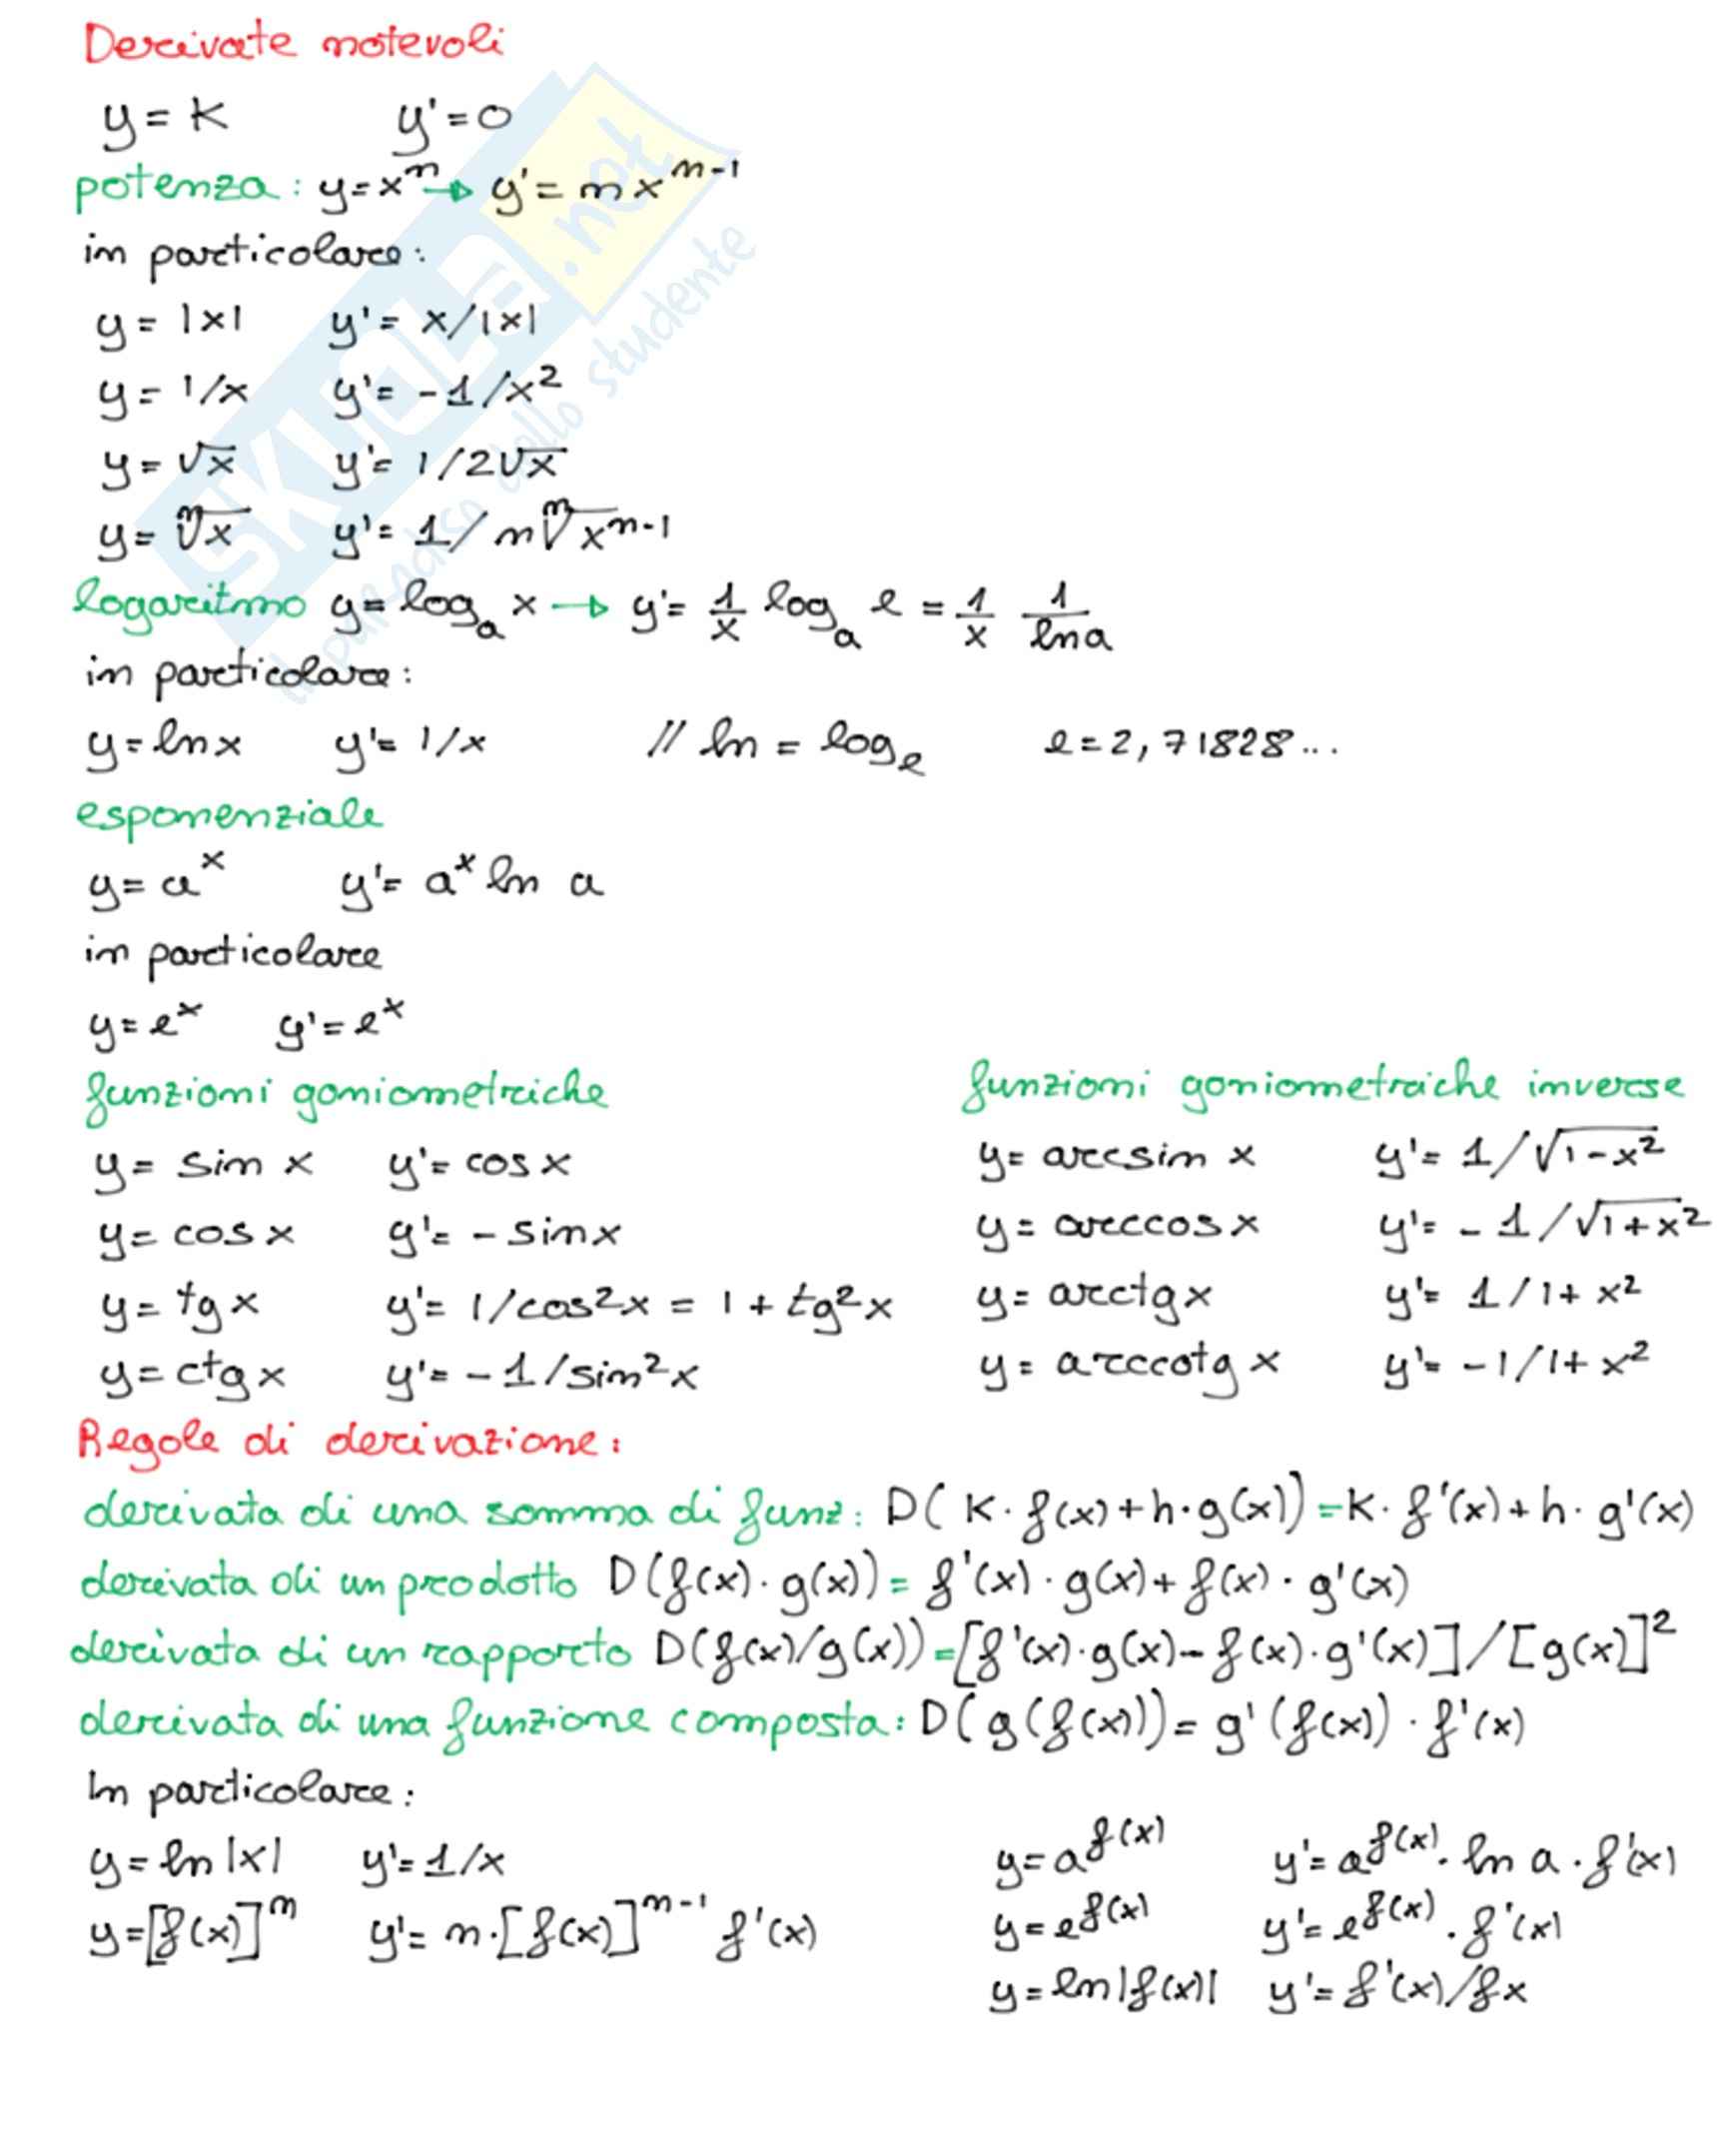 Derivate notevoli
y = K y' = 0
potenza: y = xⁿ → y' = n xⁿ⁻¹
in particolare:
y = |x| y' = x/|x|
y = 1/x y' = -1/x²
y = √x y' = 1/2√x
y = ⁿ√x y' = 1/n ⁿ√xⁿ⁻¹
logaritmo y = logₐ x → y' = 1/x logₐ e = 1/x 1/ln a
in particolare:
y = ln x y' = 1/x // ln = logₑ e = 2,71828...
esponenziale
y = aˣ y' = aˣ ln a
in particolare
y = eˣ y' = eˣ
funzioni goniometriche
y = sin x y' = cos x
y = cos x y' = - sin x
y = tg x y' = 1/cos²x = 1 + tg²x
y = ctg x y' = - 1/sin²x
funzioni goniometriche inverse
y = arcsin x y' = 1/√1-x²
y = arccos x y' = - 1/√1+x²
y = arctg x y' = 1/1+x²
y = arccotg x y' = -1/1+x²
Regole di derivazione:
derivata di una somma di funz: D(K·f(x)+h·g(x)) = K·f'(x)+h·g'(x)
derivata di un prodotto D(f(x)·g(x)) = f'(x)·g(x)+f(x)·g'(x)
derivata di un rapporto D(f(x)/g(x)) = [f'(x)·g(x)-f(x)·g'(x)]/[g(x)]²
derivata di una funzione composta: D(g(f(x))) = g'(f(x))·f'(x)
In particolare:
y = ln|x| y' = 1/x
y = [f(x)]ⁿ y' = n·[f(x)]ⁿ⁻¹ f'(x)
y = a^f(x) y' = a^f(x)·ln a·f'(x)
y = e^f(x) y' = e^f(x)·f'(x)
y = ln|f(x)| y' = f'(x)/fx
SKUOLA.net
il paradiso dello studente